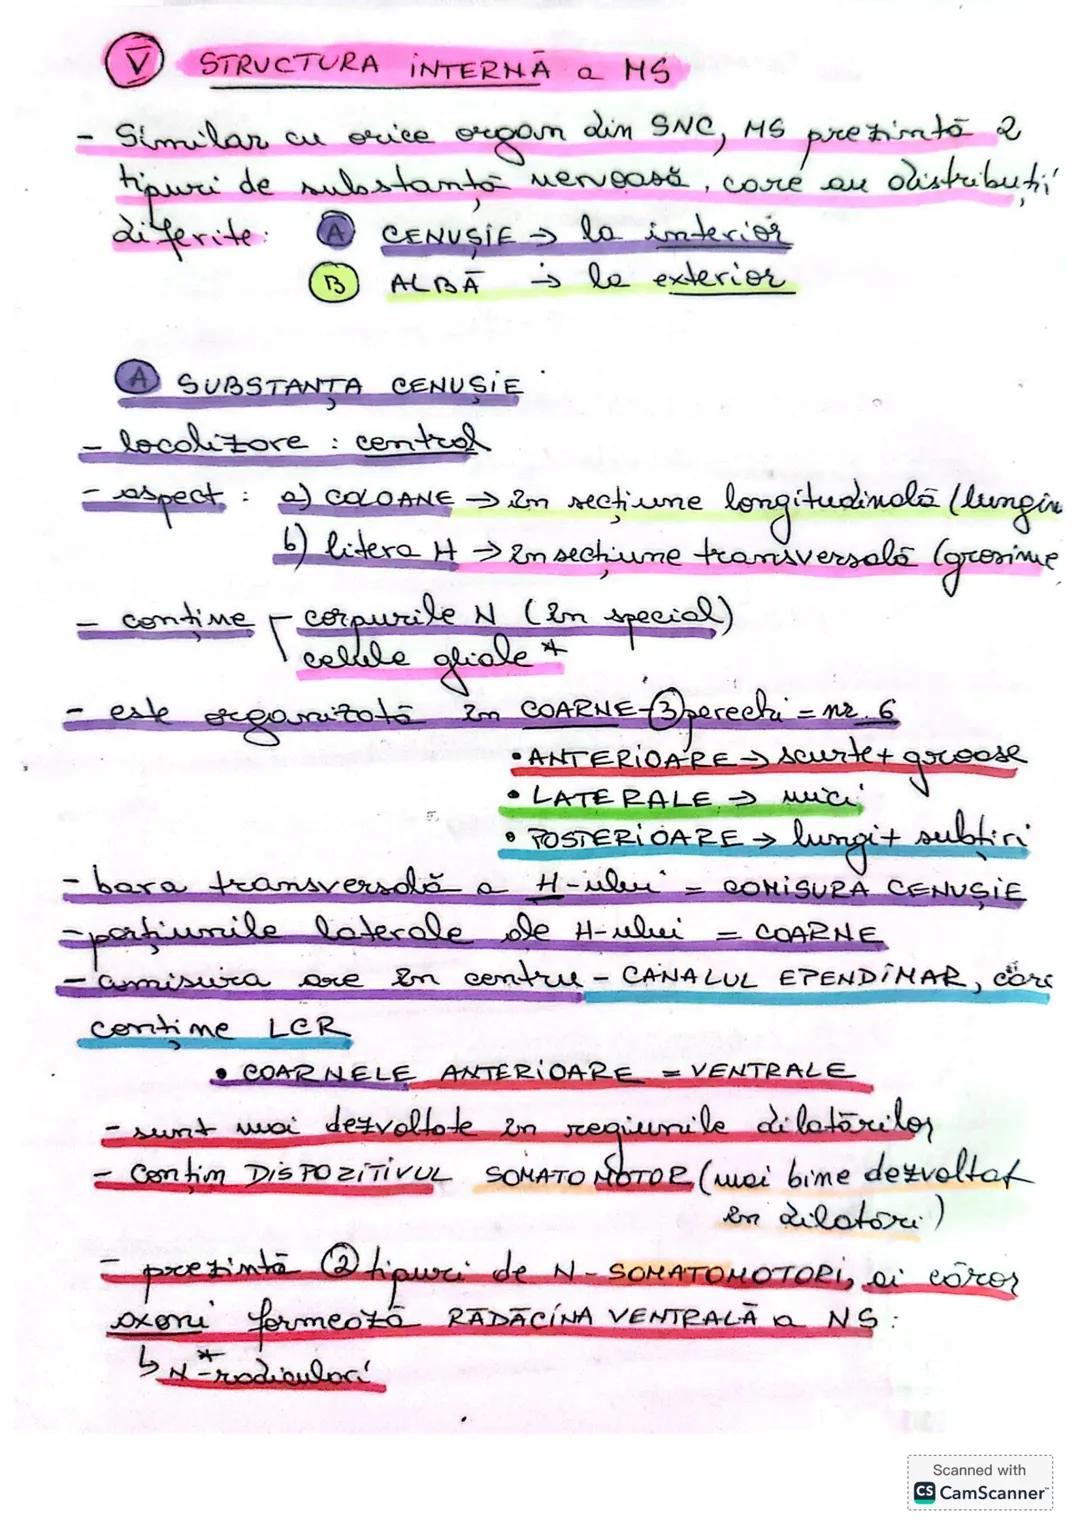 V STRUCTURA INTERNĂ a MS
- Similar cu orice organ din SNC, MS prezintă 2
tipuri de substanță nervoasă, care au distribuții
diferite: A CENUȘIE → la interior
B ALBĂ → la exterior
A SUBSTANȚA CENUȘIE
- localizare : central
- aspect : a) COLOANE → în secțiune longitudinală (lungim
b) litera H → în secțiune transversală (grosime
- conține corpurile N (în special)
celule gliale *
- este organizată în COARNE - 3 perechi = nr. 6
• ANTERIOARE → scurte + groase
• LATERALE → mici
• POSTERIOARE → lungi + subțiri
- bara transversală a H-ului = COMISURA CENUȘIE
- porțiunile laterale ale H-ului = COARNE
- comisura are în centru - CANALUL EPENDIMAR, care
conține LCR
• COARNELE ANTERIOARE = VENTRALE
- sunt mai dezvoltate în regiunile dilatărilor
- Conțin DISPOZITIVUL SOMATOMOTOR (mai bine dezvoltat
în dilatări)
- prezintă 2 tipuri de N-SOMATOMOTORI, ai căror
axoni formează RĂDĂCINA VENTRALĂ a NS :
↳ N*-radiculari
Scanned with
CS CamScanner